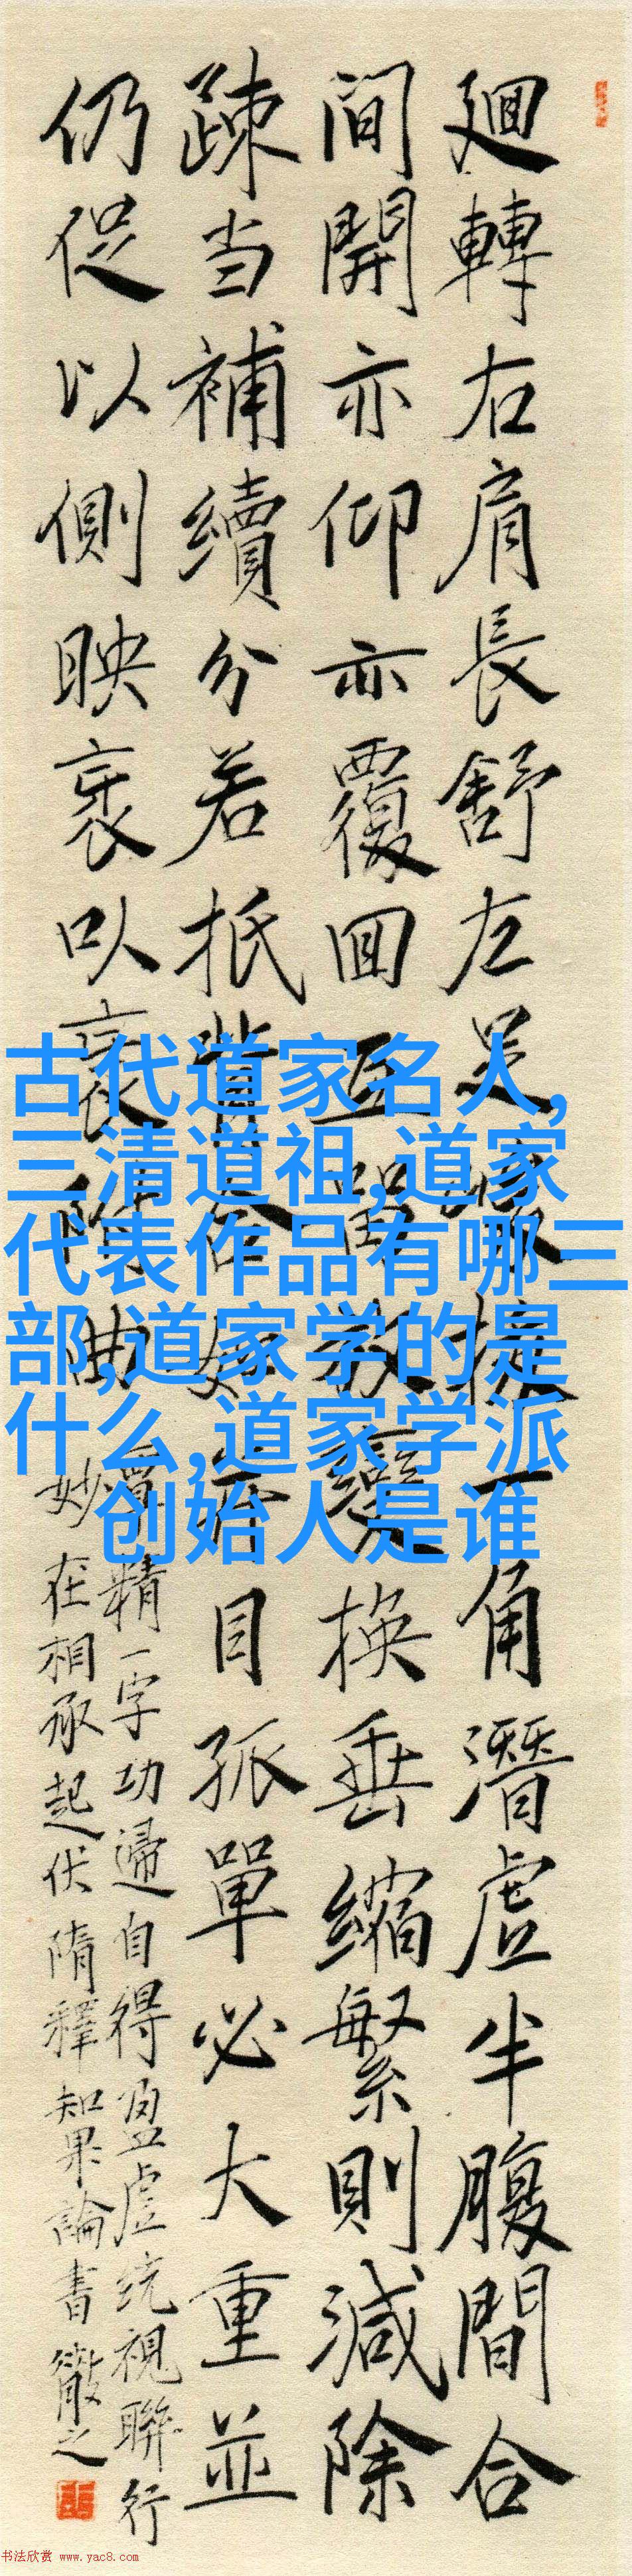 廻轉右肩長舒左足峻拔一角潛虛半腹間合
間開亦仰亦覆回互留放變換垂縮繁則減除
疎当補續分若抵背合如目孤單必大重並
仍促以側映衺以衺附曲
覃精一字功歸自得盈虛統視聯行
妙在相承起伏隋釋知果論書徹之
古代道家名人,
三清道祖,道家
代表作品有哪三
部,道家学的是
什么,道家学派
创始人是谁
书法欣赏 www.yac8.com